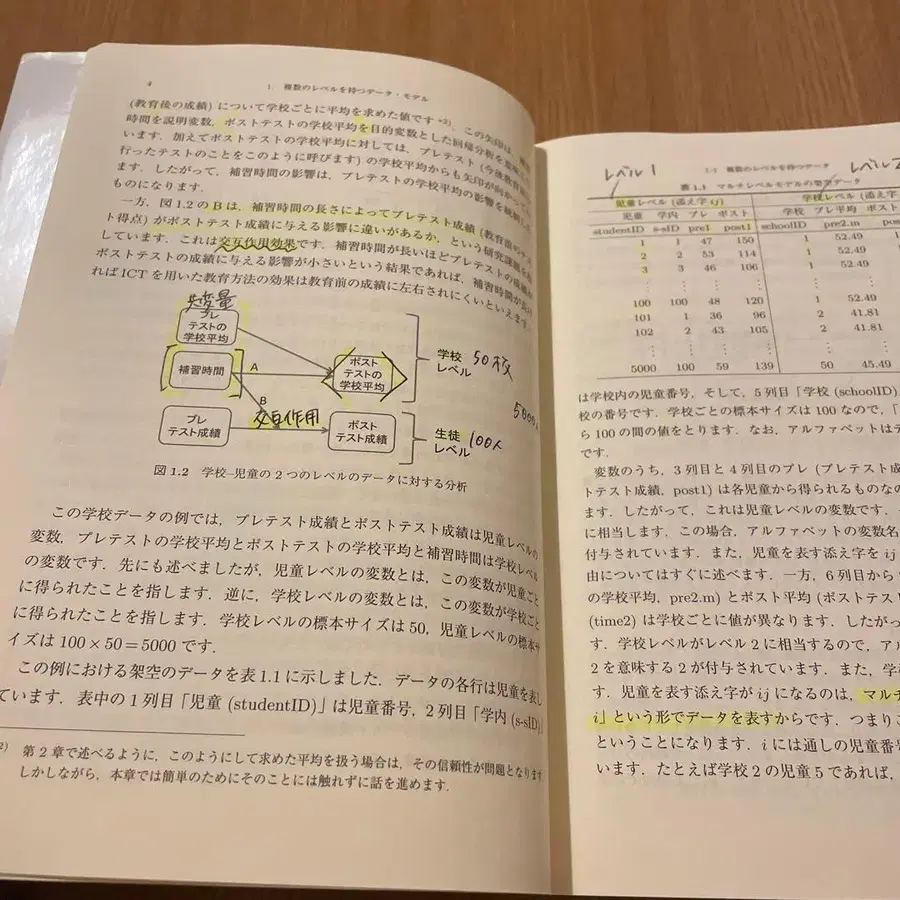 4
1 複数のレベルを持つデータ・モデル
(教育後の成績) について学校ごとに平均を求めた値です *2). この矢印は, 補習
時間を説明変数, ポストテストの学校平均を目的変数とした回帰分析を意味して
います. 加えてポストテストの学校平均に対しては, プレテスト (今後教育前に
行ったテストのことをこのように呼びます) の学校平均からも矢印が向かってい
ます. したがって, 補習時間の影響は, プレテストの学校平均の影響を統制した
ものになります.
一方, 図 1.2 の B は, 補習時間の長さによってプレテスト成績 (教育前のテス
ト得点) がポストテスト成績に与える影響に違いがあるか, という研究課題を表
しています. これは交互作用効果です. 補習時間が長いほどプレテストの成績が
ポストテストの成績に与える影響が小さいという結果であれば, 補習時間が長け
れば ICT を用いた教育方法の効果は教育前の成績に左右されにくいといえます.
共変量
プレ
テストの
学校平均
補習時間
A
ポスト
テストの
学校平均
学校
レベル
50校
B
交互作用
プレ
テスト成績
ポスト
テスト成績
生徒
レベル
100人
5000人
図 1.2 学校–児童の 2 つのレベルのデータに対する分析
この学校データの例では, プレテスト成績とポストテスト成績は児童レベルの
変数, プレテストの学校平均とポストテストの学校平均と補習時間は学校レベル
の変数です. 先にも述べましたが, 児童レベルの変数とは, この変数が児童ごと
に得られたことを指します. 逆に, 学校レベルの変数とは, この変数が学校ごと
に得られたことを指します. 学校レベルの標本サイズは 50, 児童レベルの標本サ
イズは 100×50=5000 です.
この例における架空のデータを表 1.1 に示しました. データの各行は児童を表し
ています. 表中の 1 列目「児童 (studentID)」は児童番号, 2 列目「学内 (s-sID)」
2) 第 2 章で述べるように, このようにして求めた平均を扱う場合は, その信頼性が問題となります.
しかしながら, 本章では簡単のためにそのことには触れずに話を進めます.
1.1 複数のレベルを持つデータ
レベル1
レベル2
表 1.1 マルチレベルモデルの架空データ
児童レベル (添え字 ij) 学校レベル (添え字
児童 学内 プレ ポスト 学校 プレ平均 ポスト
studentID s-sID pre1 post1 schoolID pre2.m post
1 1 47 150 1 52.49
2 2 53 114 1 52.49
3 3 46 106 1 52.49
⋮ ⋮ ⋮ ⋮ ⋮ ⋮
100 100 48 120 1 52.49
101 1 36 96 2 41.81
102 2 43 105 2 41.81
⋮ ⋮ ⋮ ⋮ ⋮ ⋮
5000 100 59 139 50 45.49
は学校内の児童番号, そして, 5 列目「学校 (schoolID)
校の番号です. 学校ごとの標本サイズは 100 なので, 「
ら 100 の間の値をとります. なお, アルファベットはデ
です.
変数のうち, 3 列目と 4 列目のプレ (プレテスト成
トテスト成績, post1) は各児童から得られるものなの
ます. したがって, これは児童レベルの変数です.
に相当します. この場合, アルファベットの変数名
付与されています. また, 児童を表す添え字を ij
由についてはすぐに述べます. 一方, 6 列目から
の学校平均, pre2.m) とポスト平均 (ポストテス
(time2) は学校ごとに値が異なります. したがっ
す. 学校レベルがレベル 2 に相当するので, アル
2 を意味する 2 が付与されています. また, 学
す. 児童を表す添え字が ij になるのは, マルチ
i」という形でデータを表すからです. つまりこ
ということになります. i には通しの児童番号
います. たとえば学校 2 の児童 5 であれば,